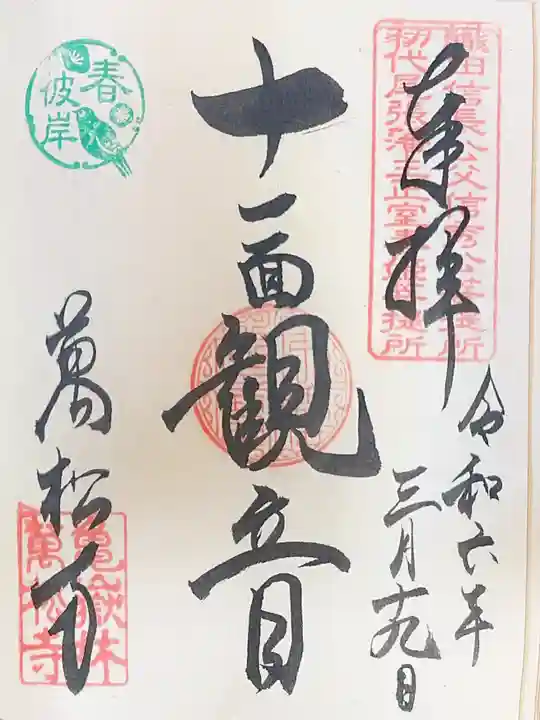 奉拝
令和六年
三月十九日
織田信長公父信秀公菩提所
初代尾張藩主正室春姫菩提所
十一面観音
春
彼岸
萬松寺
亀嶽林
萬松寺